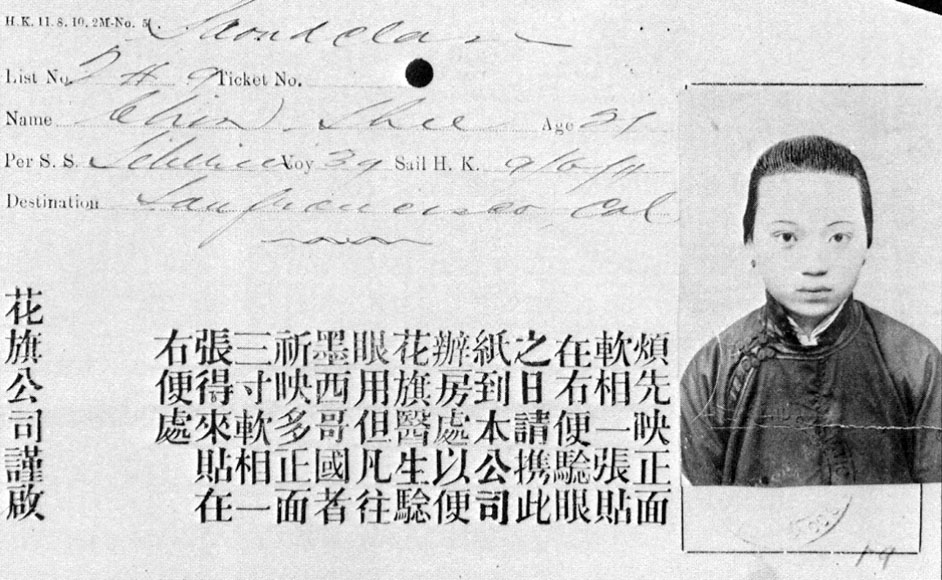 H. K. 11. 8. 10. 2M-No. 5
Second class
List No. Ticket No.
Name Chin Shee Age 21
Per S. S. Siberia Voy 39 Sail H. K.
Destination San francisco, Cal
煩先映正面
軟相一張貼
在右便騐眼
之日請携此
紙到本公司
辦房處以便
花旗醫生騐
眼用但凡往
墨西哥國者
祈映多正面
三寸軟相一
張得來貼在
右便處
花旗公司謹啟
19